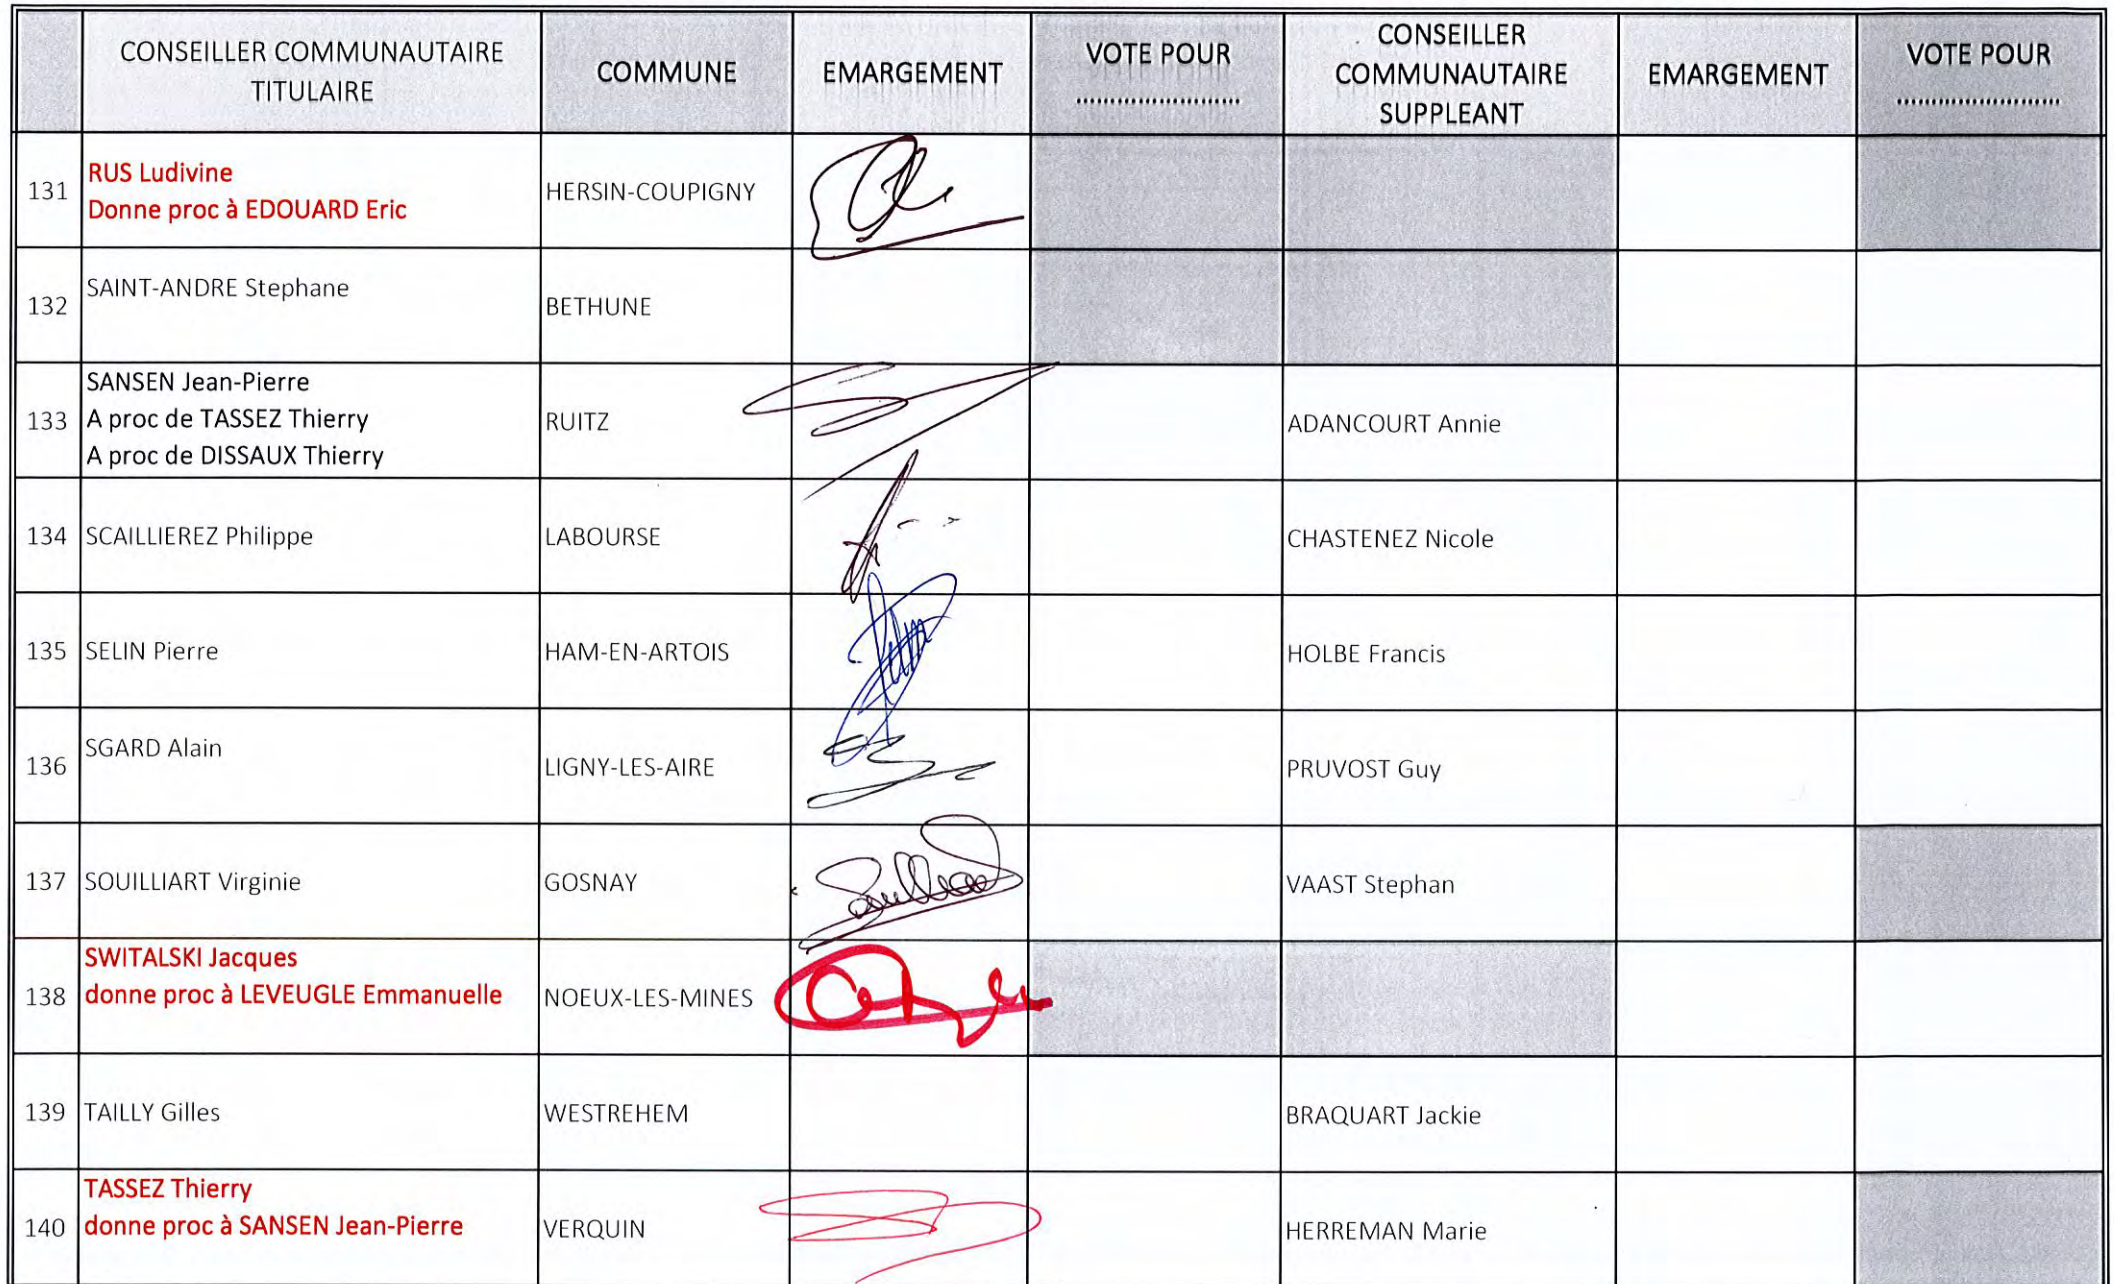 CONSEILLER COMMUNAUTAIRE
TITULAIRE
COMMUNE
EMARGEMENT
VOTE POUR
........................
CONSEILLER
COMMUNAUTAIRE
SUPPLEANT
EMARGEMENT
VOTE POUR
........................
131
RUS Ludivine
Donne proc à EDOUARD Eric
HERSIN-COUPIGNY
132
SAINT-ANDRE Stephane
BETHUNE
133
SANSEN Jean-Pierre
A proc de TASSEZ Thierry
A proc de DISSAUX Thierry
RUITZ
ADANCOURT Annie
134
SCAILLIEREZ Philippe
LABOURSE
CHASTENEZ Nicole
135
SELIN Pierre
HAM-EN-ARTOIS
HOLBE Francis
136
SGARD Alain
LIGNY-LES-AIRE
PRUVOST Guy
137
SOUILLIART Virginie
GOSNAY
VAAST Stephan
138
SWITALSKI Jacques
donne proc à LEVEUGLE Emmanuelle
NOEUX-LES-MINES
139
TAILLY Gilles
WESTREHEM
BRAQUART Jackie
140
TASSEZ Thierry
donne proc à SANSEN Jean-Pierre
VERQUIN
HERREMAN Marie